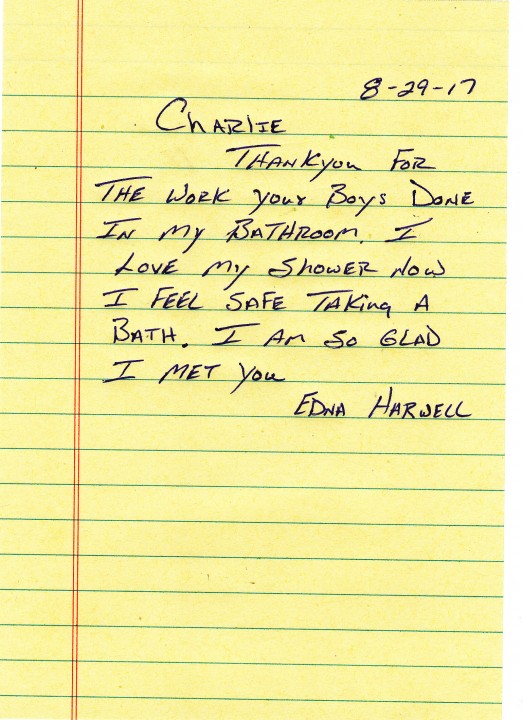 8-29-17
Charlie
Thankyou For
The Work your Boys Done
In my Bathroom. I
Love my Shower Now
I Feel Safe Taking A
Bath. I Am So Glad
I Met You
Edna Harwell